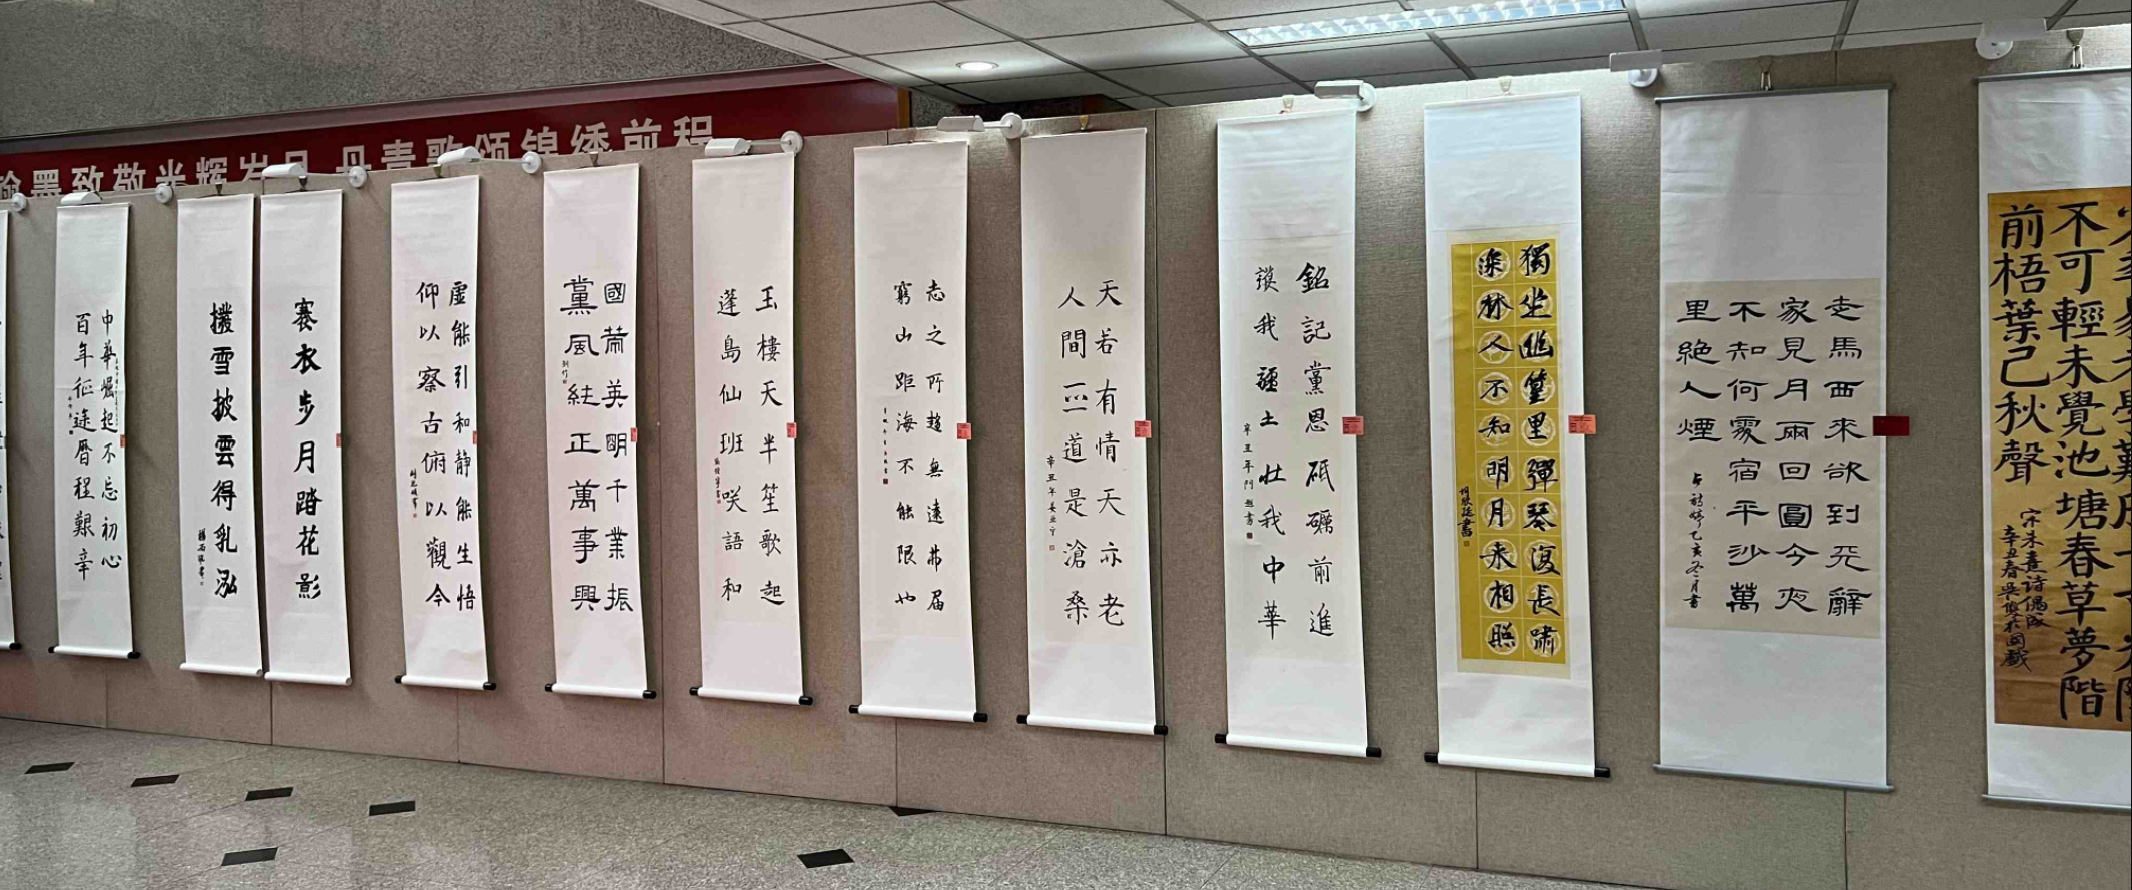 翰墨致敬光辉岁月 丹青歌颂锦绣前程
不可輕未覺池塘春草夢階
前梧葉已秋聲
宋朱熹詩偶成
走馬西來欲到天辭
家見月兩回圓今夜
不知何處宿平沙萬
里絕人煙
獨坐幽篁里彈琴復長嘯
深林人不知明月來相照
銘記黨恩砥礪前進
護我疆土壯我中華
辛丑年
天若有情天亦老
人間正道是滄桑
辛丑年
志之所趨無遠弗屆
窮山距海不能限也
玉樓天半笙歌起
蓬島仙班咲語和
國常英明千業振
黨風純正萬事興
虛能引和静能生悟
仰以察古俯以觀今
褰衣步月踏花影
撥雪披雲得乳泓
中華崛起不忘初心
百年征途曆程艱辛